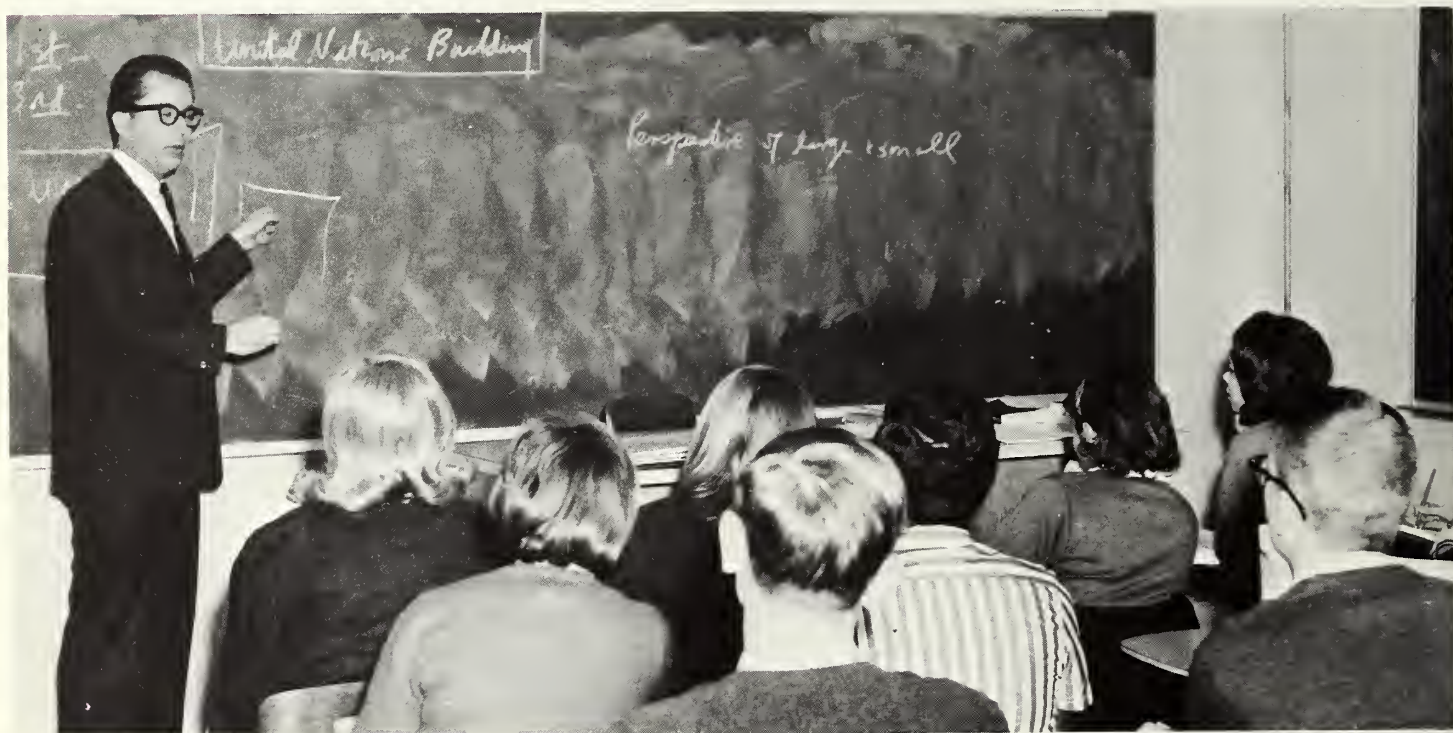 1st
3rd
United Nations Building
Perspective of large & small